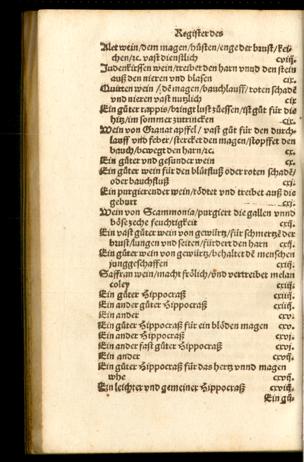 Register des
Alet wein/dem magen/hůsten/enge der brust/kei-
chen/rc. vast dienstlich cviij.
Judenkirssen wein/treibet den harn vnnd den stein
auß den nieren vnd blasen cix.
Quitten wein/dē magen/bauchlauff/roten schadē
vnd nieren vast nutzlich cix
Ein gůter rappis/bringt lust zůessen/ist gůt für die
hitz/im sommer zutrincken cix.
Wein von Granat apffel/vast gůt für den durch-
lauff vnd feber/stercket den magen/stopffet den
bauch/bewegt den harn/rc. cx.
Ein gůter vnd gesunder wein cx.
Ein gůter wein für den blůtfluß oder roten schadē/
oder bauchfluß cxj.
Ein purgierender wein/tödtet vnd treibet auß die
geburt cxj.
Wein von Scammonia/purgiert die gallen vnnd
böse zehe feuchtigkeit cxij.
Ein vast gůter wein von gewürtz/für schmertzē der
brust/lungen vnd seiten/fürdert den harn cxij.
Ein gůter wein von gewürtz/behaltet dē menschen
junggeschaffen cxiij.
Saffran wein/macht frölich/vnd vertreibet melan
coley cxiij.
Ein gůter Hippocraß cxiij.
Ein ander gůter Hippocraß cxiiij.
Ein ander cxv.
Ein gůter Hippocraß für ein blöden magen cxv.
Ein ander Hippocraß cxvj.
Ein ander fast gůter Hippocraß cxvj.
Ein ander cxvij.
Ein gůter Hippocraß für das hertz vnnd magen
whe cxvij.
Ein leichter vnd gemeiner Hippocraß cxviij.
Ein gů-